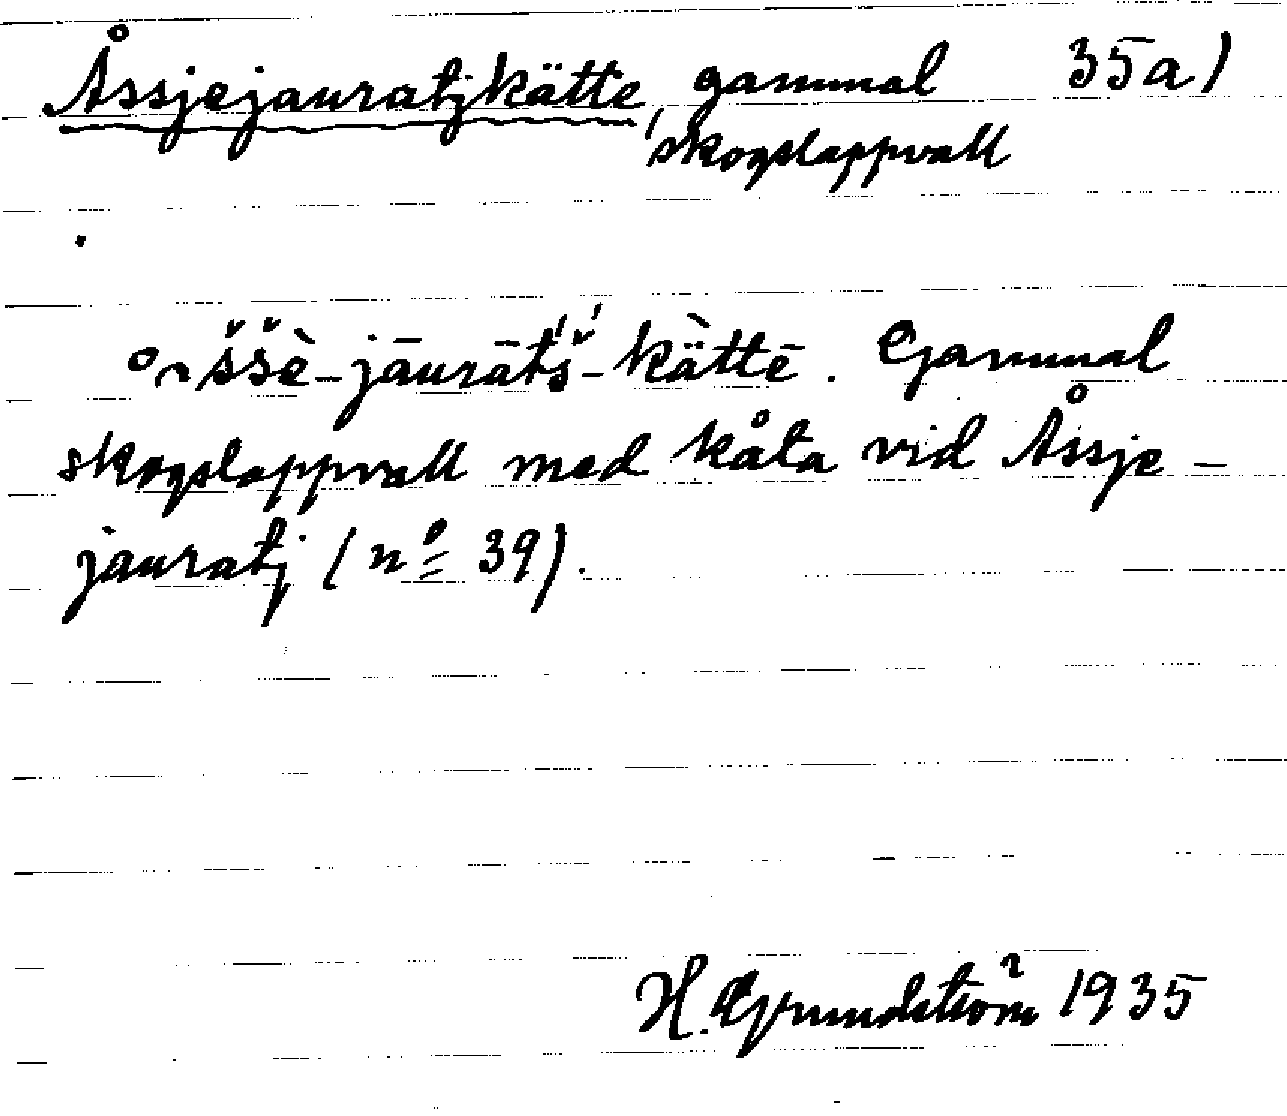 Åssjejauratjkätte, gammal 35a)
skogslappvall
ššè-jāurāt́š́-kä̀ttē. Gammal
skogslappvall med kåta vid Åssje-
jauratj (nº 39).
H. Grundström 1935